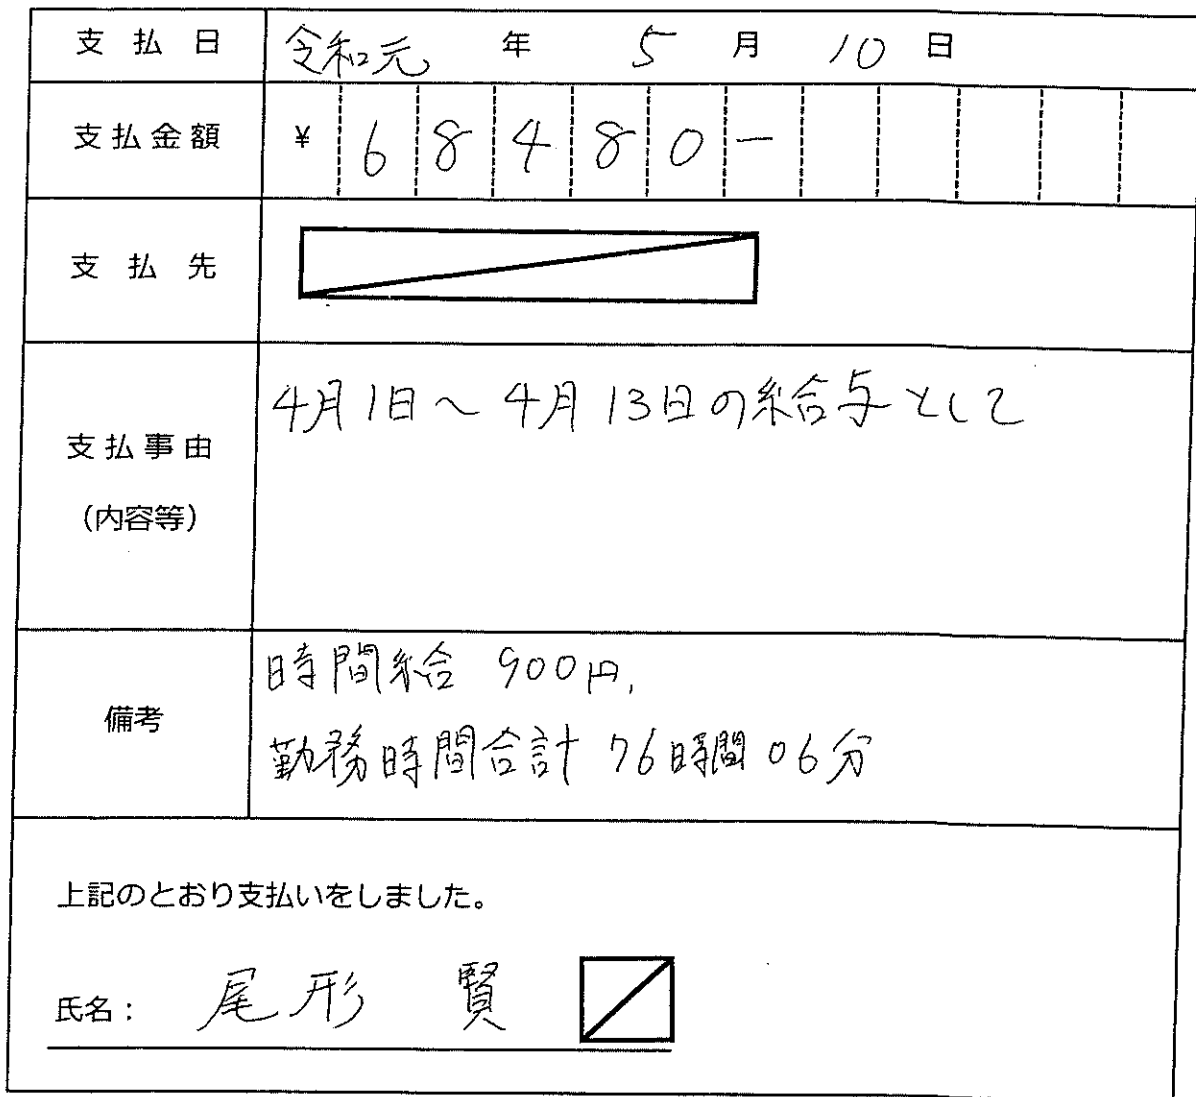 支払日 令和元年 5月 10日
支払金額 ¥68480-
支払先
支払事由
(内容等)
4月1日~4月13日の給与として
備考
時間給 900円,
勤務時間合計 76時間06分
上記のとおり支払いをしました。
氏名: 尾形 賢